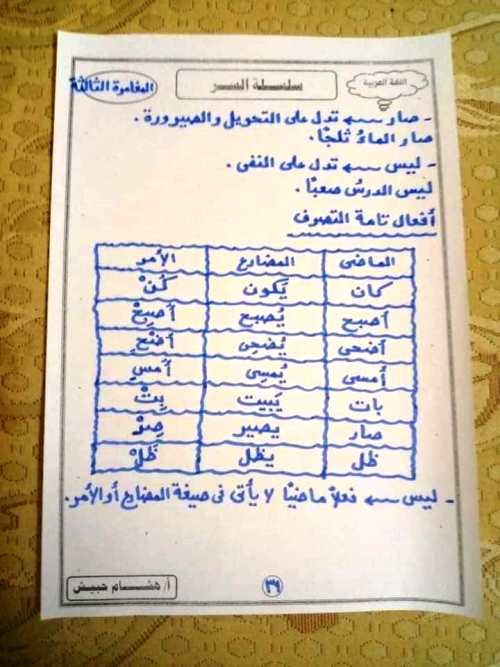 اللغة العربية
سلسلة السر
المغامرة الثالثة
- صار ← تدل على التحويل والصيرورة .
صار الماءُ ثلجًا.
- ليس ← تدل على النفى .
ليس الدرسُ صعبًا .
أفعال تامة التصرف
الماضى المضارع الأمر
كان يَكون كُنْ
أصبح يُصبح أَصبِحْ
أضحى يُضحِى أَضْحِ
أمسى يُمسِى أَمسِ
بات يَبيت بِتْ
صار يصير صِرْ
ظل يظل ظَلْ
- ليس ← فعلاً ماضيًا لا يأتى فى صيغة المضارع أو الأمر.
أ/ هشام حبيش
٣٩